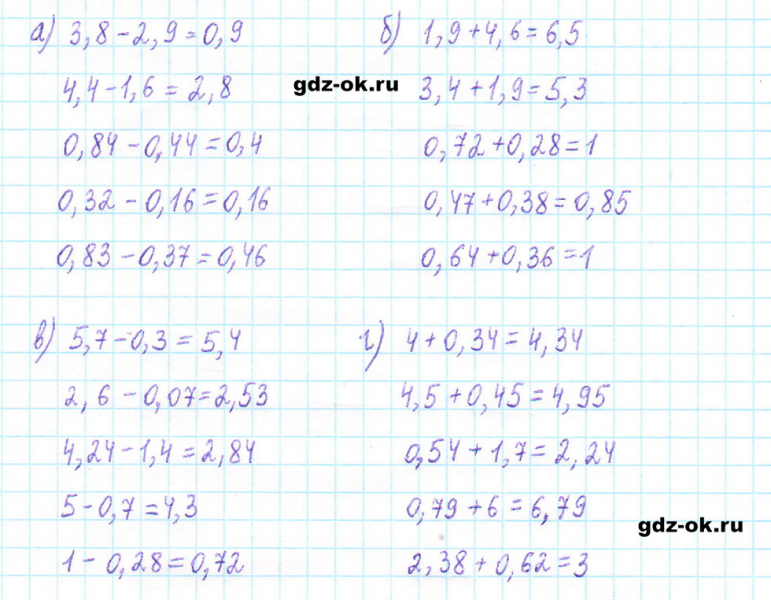 а) 3,8-2,9=0,9
4,4-1,6=2,8
0,84-0,44=0,4
0,32-0,16=0,16
0,83-0,37=0,46
б) 1,9+4,6=6,5
3,4+1,9=5,3
0,72+0,28=1
0,47+0,38=0,85
0,64+0,36=1
gdz-ok.ru
в) 5,7-0,3=5,4
2,6-0,07=2,53
4,24-1,4=2,84
5-0,7=4,3
1-0,28=0,72
г) 4+0,34=4,34
4,5+0,45=4,95
0,54+1,7=2,24
0,79+6=6,79
2,38+0,62=3
gdz-ok.ru